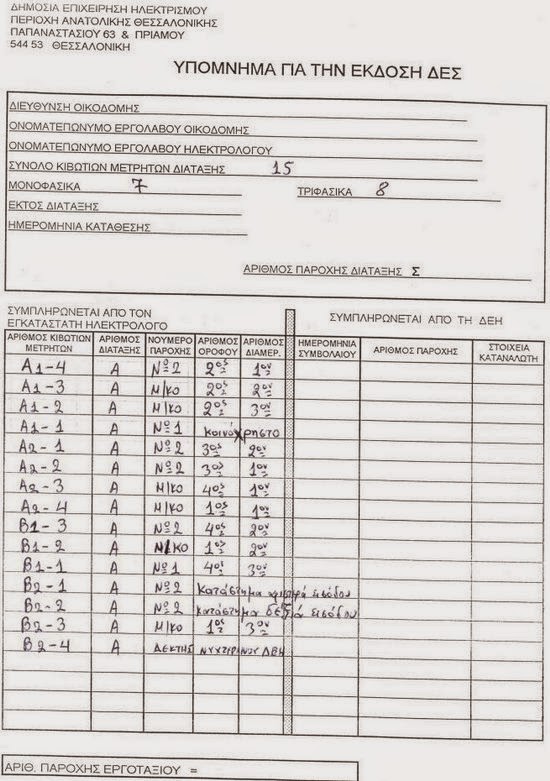 ΔΗΜΟΣΙΑ ΕΠΙΧΕΙΡΗΣΗ ΗΛΕΚΤΡΙΣΜΟΥ
ΠΕΡΙΟΧΗ ΑΝΑΤΟΛΙΚΗΣ ΘΕΣΣΑΛΟΝΙΚΗΣ
ΠΑΠΑΝΑΣΤΑΣΙΟΥ 63 & ΠΡΙΑΜΟΥ
544 53 ΘΕΣΣΑΛΟΝΙΚΗ
ΥΠΟΜΝΗΜΑ ΓΙΑ ΤΗΝ ΕΚΔΟΣΗ ΔΕΣ
ΔΙΕΥΘΥΝΣΗ ΟΙΚΟΔΟΜΗΣ
ΟΝΟΜΑΤΕΠΩΝΥΜΟ ΕΡΓΟΛΑΒΟΥ ΟΙΚΟΔΟΜΗΣ
ΟΝΟΜΑΤΕΠΩΝΥΜΟ ΕΡΓΟΛΑΒΟΥ ΗΛΕΚΤΡΟΛΟΓΟΥ
ΣΥΝΟΛΟ ΚΙΒΩΤΙΩΝ ΜΕΤΡΗΤΩΝ ΔΙΑΤΑΞΗΣ 15
ΜΟΝΟΦΑΣΙΚΑ 7 ΤΡΙΦΑΣΙΚΑ 8
ΕΚΤΟΣ ΔΙΑΤΑΞΗΣ
ΗΜΕΡΟΜΗΝΙΑ ΚΑΤΑΘΕΣΗΣ
ΑΡΙΘΜΟΣ ΠΑΡΟΧΗΣ ΔΙΑΤΑΞΗΣ Σ
ΣΥΜΠΛΗΡΩΝΕΤΑΙ ΑΠΟ ΤΟΝ
ΕΓΚΑΤΑΣΤΑΤΗ ΗΛΕΚΤΡΟΛΟΓΟ
ΣΥΜΠΛΗΡΩΝΕΤΑΙ ΑΠΟ ΤΗ ΔΕΗ
ΑΡΙΘΜΟΣ ΚΙΒΩΤΙΩΝ ΜΕΤΡΗΤΩΝ ΑΡΙΘΜΟΣ ΔΙΑΤΑΞΗΣ ΝΟΥΜΕΡΟ ΠΑΡΟΧΗΣ ΑΡΙΘΜΟΣ ΟΡΟΦΟΥ ΑΡΙΘΜΟΣ ΔΙΑΜΕΡ. ΗΜΕΡΟΜΗΝΙΑ ΣΥΜΒΟΛΑΙΟΥ ΑΡΙΘΜΟΣ ΠΑΡΟΧΗΣ ΣΤΟΙΧΕΙΑ ΚΑΤΑΝΑΛΩΤΗ
Α1-4 Α Νº2 2ος 1ον
Α1-3 Α Μ/ΚΟ 2ος 2ον
Α1-2 Α Μ/ΚΟ 2ος 3ον
Α1-1 Α Νº1 κοινόχρηστο
Α2-1 Α Νº2 3ος 2ον
Α2-2 Α Νº2 3ος 1ον
Α2-3 Α Μ/ΚΟ 4ος 1ον
Α2-4 Α Μ/ΚΟ 1ος 1ον
Β1-3 Α Νº2 4ος 2ον
Β1-2 Α Μ/ΚΟ 1ος 2ον
Β1-1 Α Νº1 4ος 3ον
Β2-1 Α Νº2 κατάστημα αριστερά εισόδου
Β2-2 Α Νº2 κατάστημα δεξιά εισόδου
Β2-3 Α Μ/ΚΟ 1ος 3ον
Β2-4 Α ΔΕΚΤΗΣ ΝΥΧΤΕΡΙΝΟΥ ΔΕΗ
ΑΡΙΘ. ΠΑΡΟΧΗΣ ΕΡΓΟΤΑΞΙΟΥ =